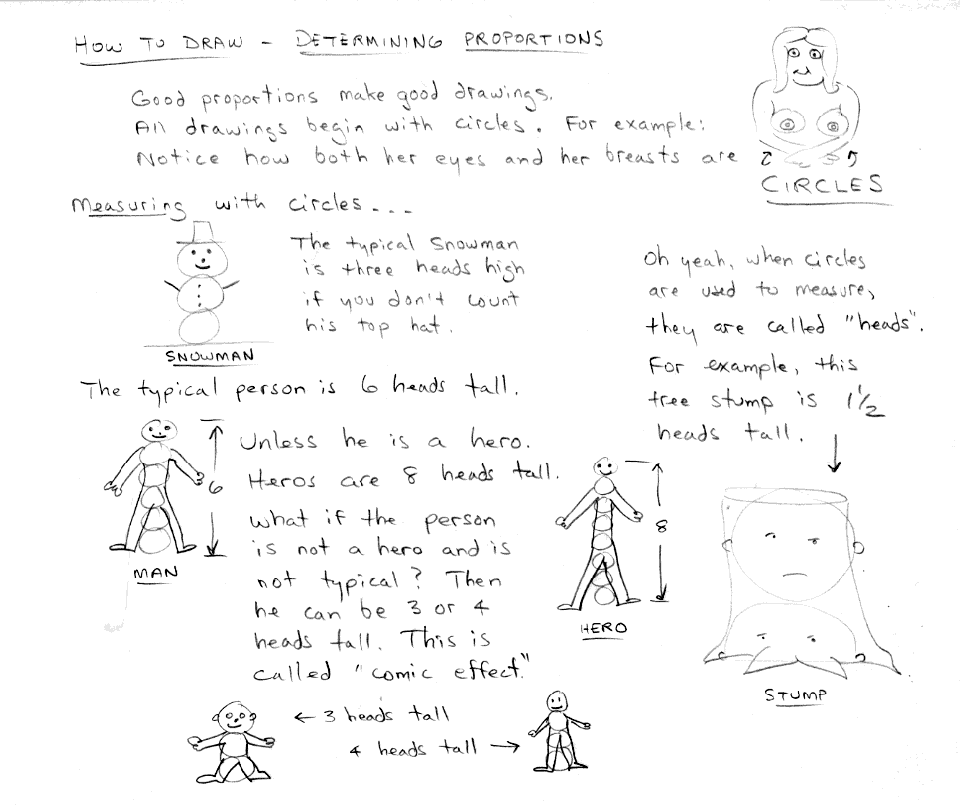 HOW TO DRAW - DETERMINING PROPORTIONS
Good proportions make good drawings.
All drawings begin with circles. For example:
Notice how both her eyes and her breasts are
CIRCLES
Measuring with circles...
The typical snowman
is three heads high
if you don't count
his top hat.
SNOWMAN
Oh yeah, when circles
are used to measure,
they are called "heads".
For example, this
tree stump is 1 1/2
heads tall.
The typical person is 6 heads tall.
6
MAN
Unless he is a hero.
Heros are 8 heads tall.
What if the person
is not a hero and is
not typical? Then
he can be 3 or 4
heads tall. This is
called "comic effect."
8
HERO
STUMP
← 3 heads tall
4 heads tall →